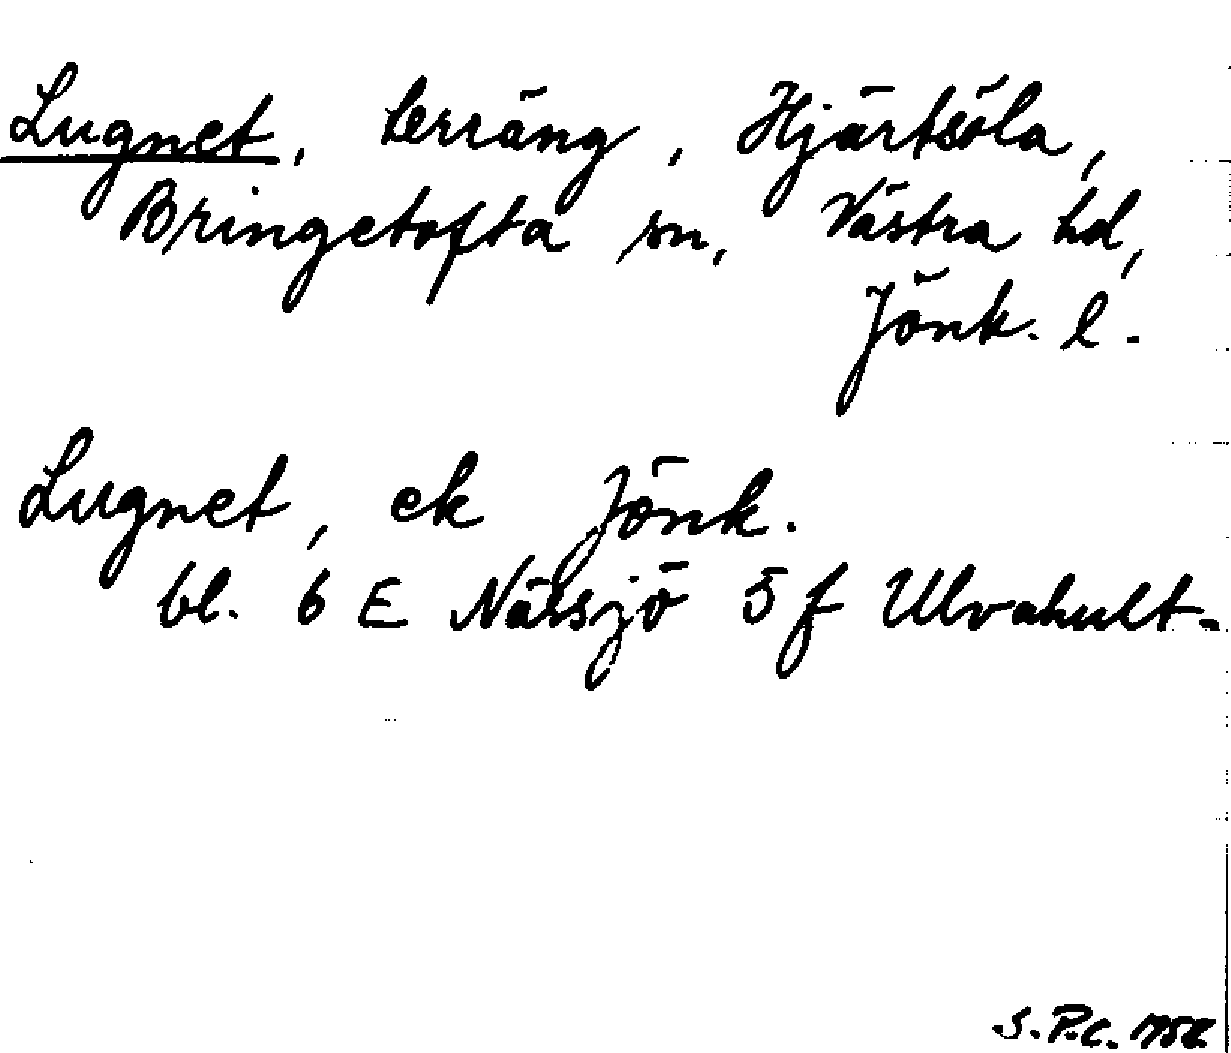 Lugnet, terräng, Hjärtsöla,
Bringetofta sn, Västra hd,
Jönk. l.
Lugnet, ek Jönk.
bl. 6 E Nässjö 5f Ulvahult.
S.P.C.